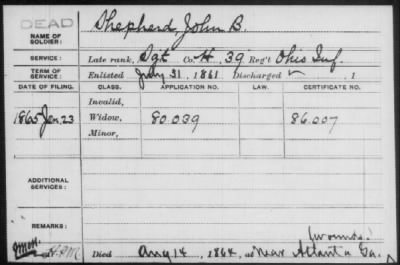 DEAD
NAME OF SOLDIER: Shepherd, John B.
SERVICE: Late rank, Sgt Co. H, 39 Reg't Ohio Inf.
TERM OF SERVICE: Enlisted July 31, 1861 Discharged , 1
DATE OF FILING. CLASS. APPLICATION NO. LAW. CERTIFICATE NO.
Invalid,
1865 Jan. 23 Widow, 80.039 86.007
Minor,
ADDITIONAL SERVICES:
REMARKS: (wounds)
Died Aug 14, 1864, at Near Atlanta Ga.